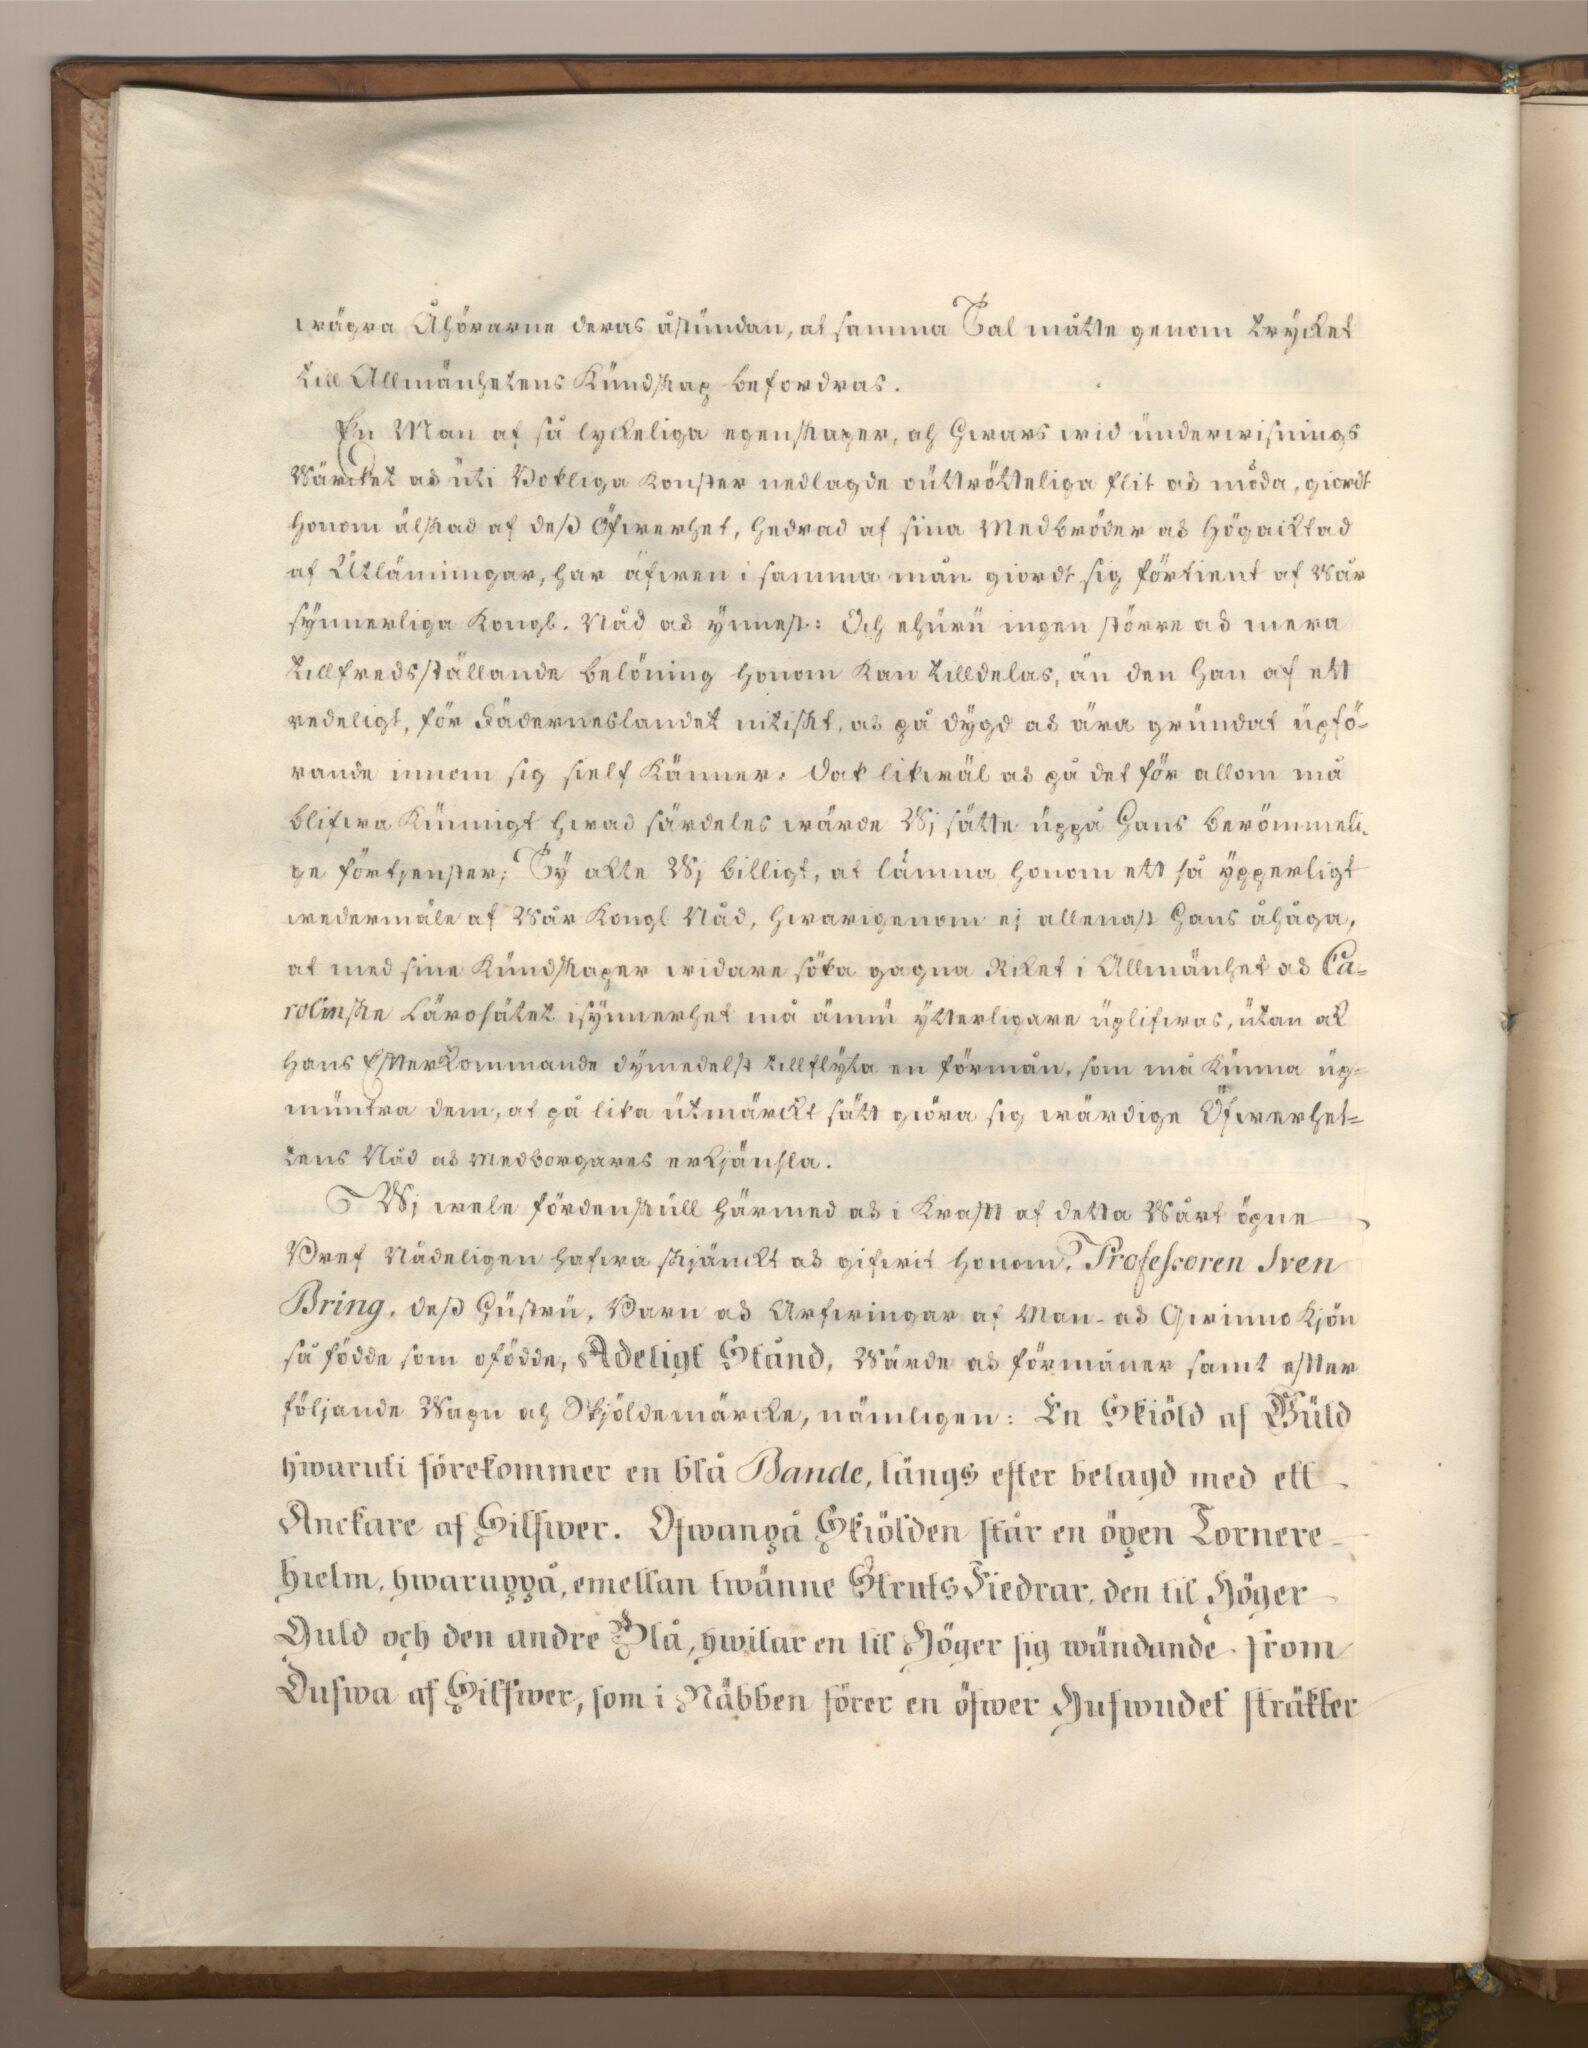 wägra Åhörarne deras åstundan, at samma Tal måtte genom trycket
till Allmänhetens Kundskap befordras.
En Man af så lyckeliga egenskaper, och hwars wid underwisnings
Wärcket och uti Bokliga konster nedlagde outtrötteliga flit och möda, giordt
honom älskad af dess Öfwerhet, hedrad af sina Medbröder och högacktad
af Utlänningar, har äfwen i samma mån giordt sig förtient af Wår
synnerliga Kongl. Nåd och ynnest: Och ehuru ingen större och mera
tillfredsställande belöning honom kan tilldelas, än den han af ett
redeligt, för Fäderneslandet nitiskt, och på dygd och ära grundat upfö-
rande innom sig sielf känner: Dock likwäl och på det för allom må
blifwa kunnigt hwad särdeles wärde Wj sätte uppå Hans berömmeli-
ge förtjenster; Ty akte Wj billigt, at lämna honom ett så ypperligt
wedermäle af Wår Kongl Nåd, hwarigenom ej allenast Hans åhåga,
at med sine Kundskaper widare söka gagna Riket i Allmänhet och Ca-
rolinske Lärosätet isynnerhet må ännu ytterligare uplifwas, utan at
hans Efterkommande dymedelst tillflyta en förmån, som må kunna up-
muntra dem, at på lika utmärckt sätt giöra sig wärdige Öfwerhet-
tens Nåd och Medborgares erkjänsla.
Wj wele fördenskull härmed och i Kraft af detta Wårt öpne
Bref Nådeligen hafwa skjänckt och gifwit honom, Professoren Sven
Bring, dess Hustru, Barn och Arfwingar af Man- och Qwinno Kjön
så födde som ofödde, Adeligt Stånd, Wärde och förmåner samt efter
följande Wapn och Skjöldemärcke, nämligen: En Skiöld af Guld
hwaruti förekommer en blå Bande, längs efter belagd med ett
Anckare af Silfwer. Ofwanpå Skiölden står en öpen Tornere-
hielm, hwaruppå, emellan twänne Struts Fiedrar, den til Höger
Guld och den andre Blå, hwilar en til Höger sig wändande from
Dufwa af Silfwer, som i Näbben förer en öfwer Hufwudet sträkter